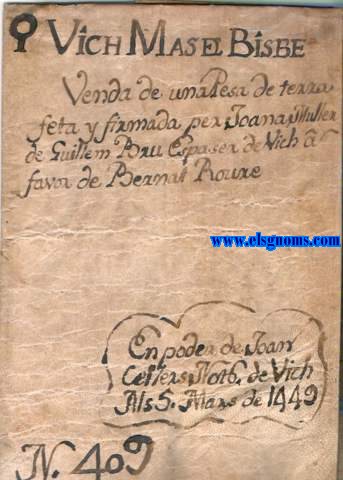 VICH MAS EL BISBE
Venda de una Pesa de terra
feta y firmada per Joana Muller
de Guillem Bru Espaser de Vich â
favor de Bernat Roure
www.elsgnoms.com
En poder de Joan
Cellers Notó. de Vich
Als 5. Mars de 1449
N. 409